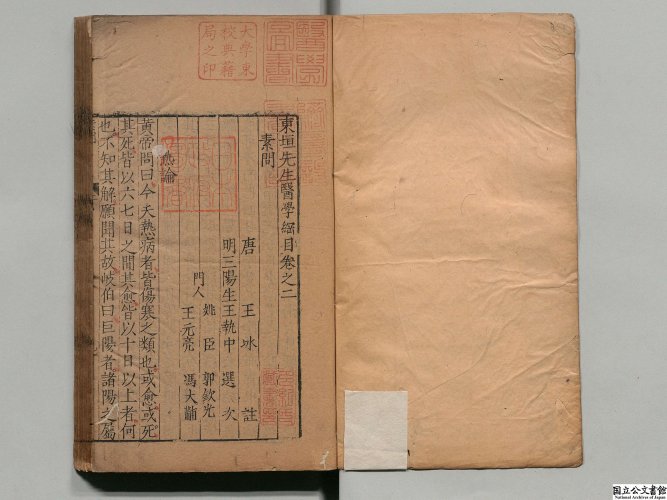 東垣先生醫學綱目卷之二
素問
唐 王冰 註
明三陽生王執中 選次
門人 姚臣 郭欽光
王元亮 馮大鼐
熱論
黃帝問曰今夫熱病者皆傷寒之類也或愈或死
其死皆以六七日之間其愈皆以十日以上者何
也不知其解願聞其故岐伯曰巨陽者諸陽之屬
大學東
校典藉
局之印
國立公文書館
National Archives of Japan